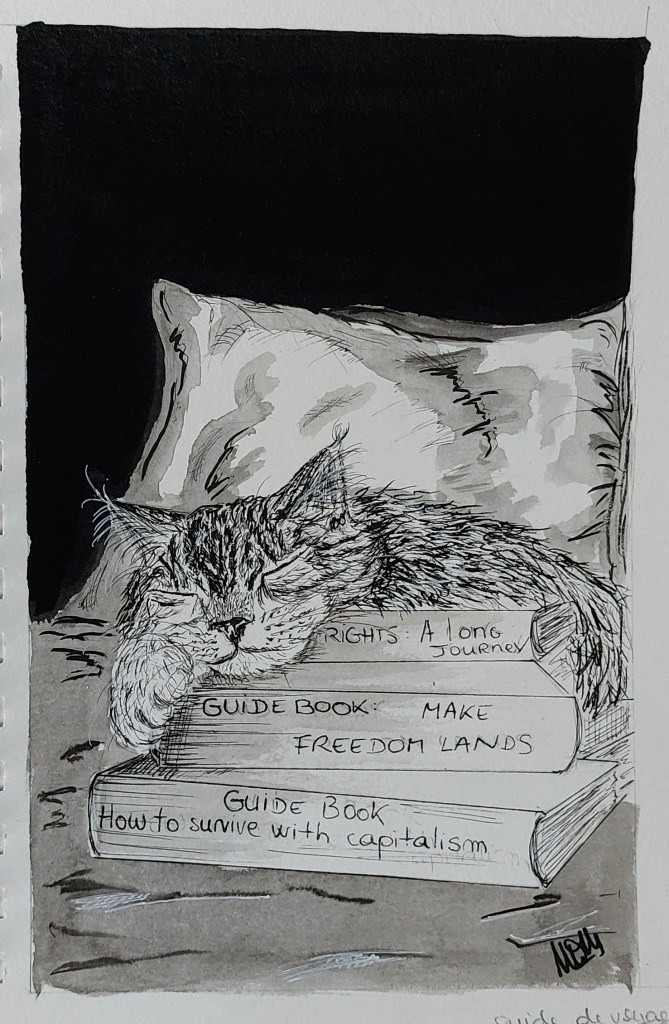 RIGHTS: A long
JOURNEY
GUIDE BOOK: MAKE
FREEDOM LANDS
GUIDE BOOK
How to survive with capitalism
guide de